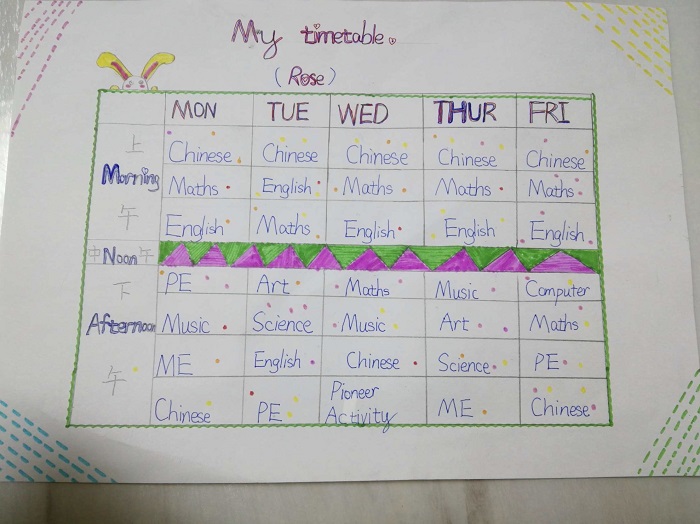 My timetable.
(Rose)
MON TUE WED THUR FRI
上
Chinese Chinese Chinese Chinese Chinese
Morning
Maths English Maths Maths Maths
午
English Maths English English English
中 Noon 午
下
PE Art Maths Music Computer
Afternoon
Music Science Music Art Maths
午
ME English Chinese Science PE
Chinese PE Pioneer Activity ME Chinese